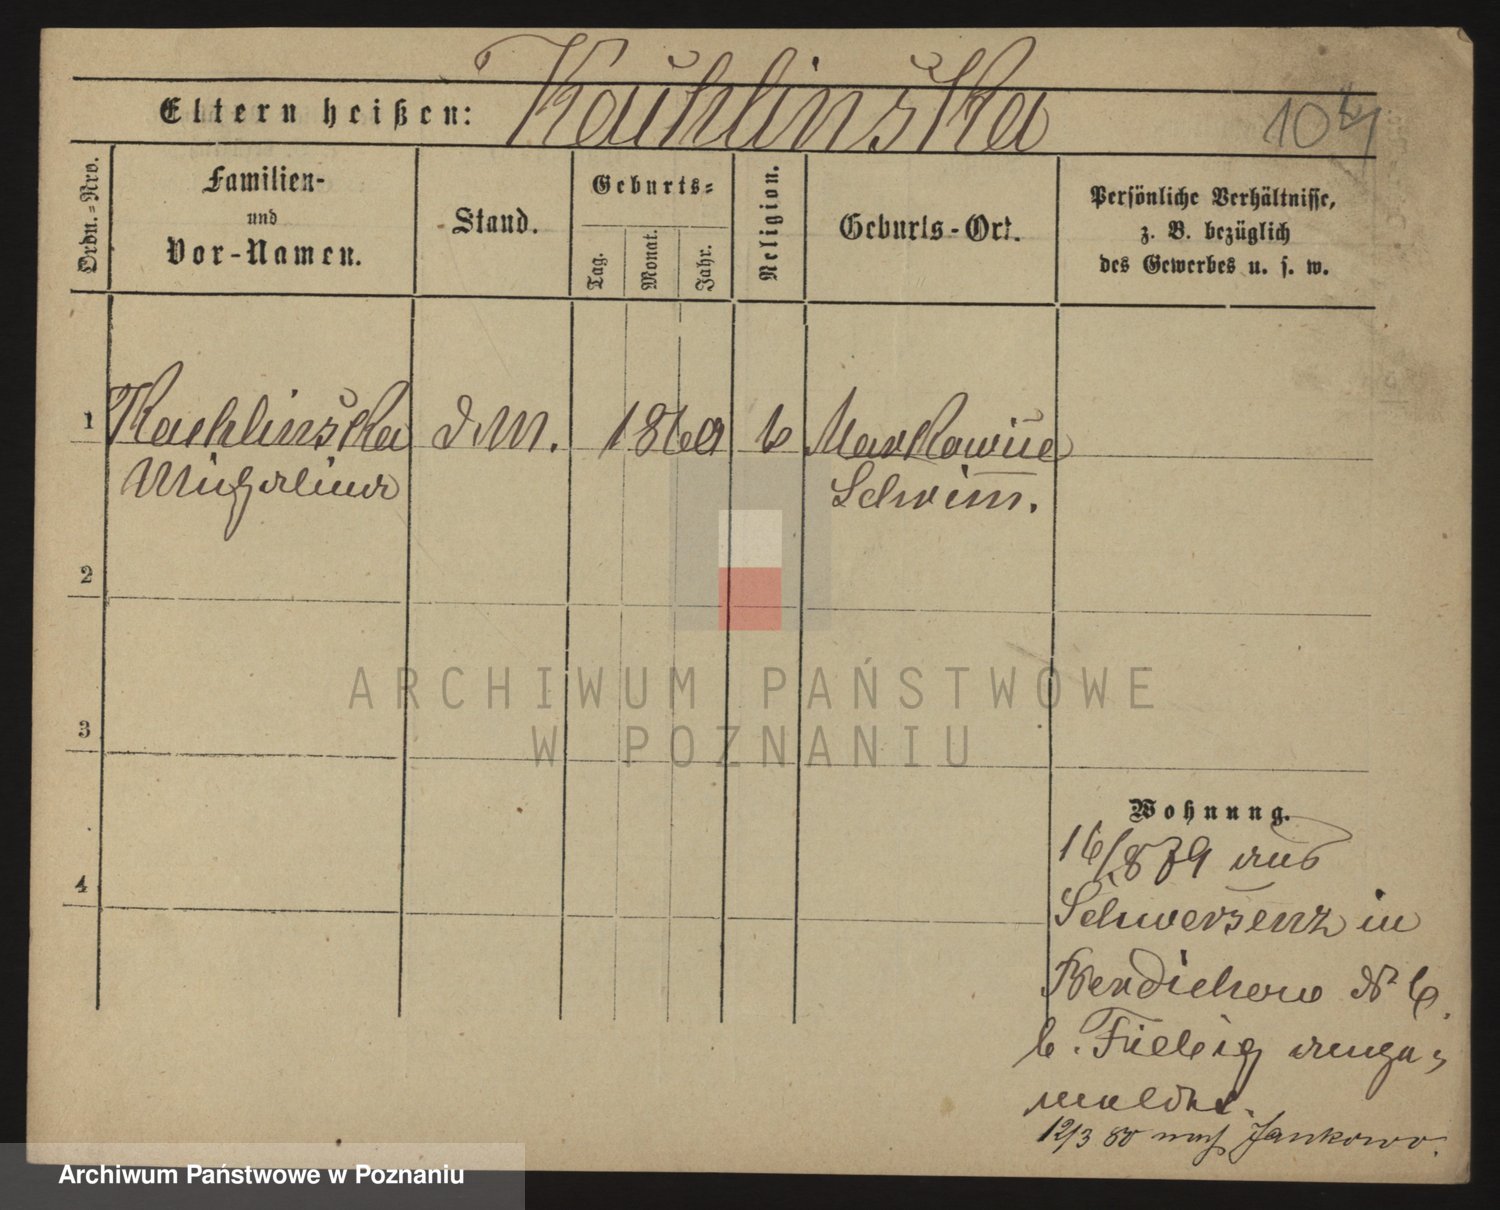 Kachlinska
Eltern heißen:
104
Ordn.=Nro.
Familien-
und
Vor-Namen.
Stand.
Geburts=
Tag.
Monat.
Jahr.
Religion.
Geburts-Ort.
Persönliche Verhältnisse,
z. B. bezüglich
des Gewerbes u. s. w.
1 Kachlinska d. M. 1860 k Markowice
Michalina Schrim.
2
3
4
ARCHIWUM PAŃSTWOWE
W POZNANIU
Wohnung.
16/8 79 aus
Schwersenz in
Berdichowo No 6
b. Fiebig ange=
meldet.
12/3 80 nach Jankowo.
Archiwum Państwowe w Poznaniu